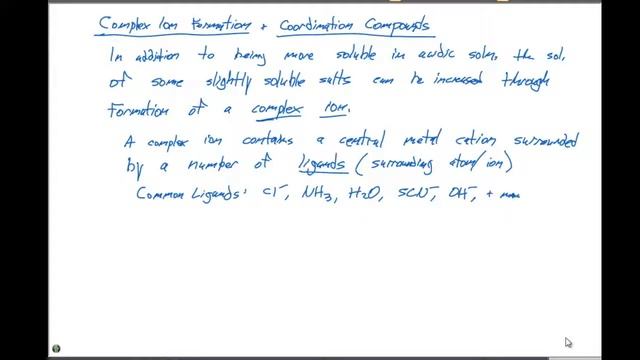 Complex Ion Formation + Coordination Compounds
In addition to being more soluble in acidic soln, the sol.
of some slightly soluble salts can be increased through
Formation of a complex ion.
A complex ion contains a central metal cation surrounded
by a number of ligands (surrounding atom/ion)
Common Ligands: Cl⁻, NH₃, H₂O, SCN⁻, OH⁻, +